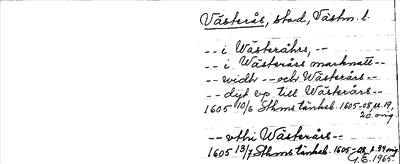 Västerås, stad, Västm. l.
-- i Wästeråhrs, --
-- i Wästerårs marknatt --
-- widh -- och Wästerårs --
-- dijt vp till Wästerårs --
1605 10/6 Sthms tänkeb. 1605-08, s. 19,
20. orig.
-- vthi Wästerårs --
1605 13/7 Sthms tänkeb. 1605-08, s. 34 orig.
G.E. 1965.